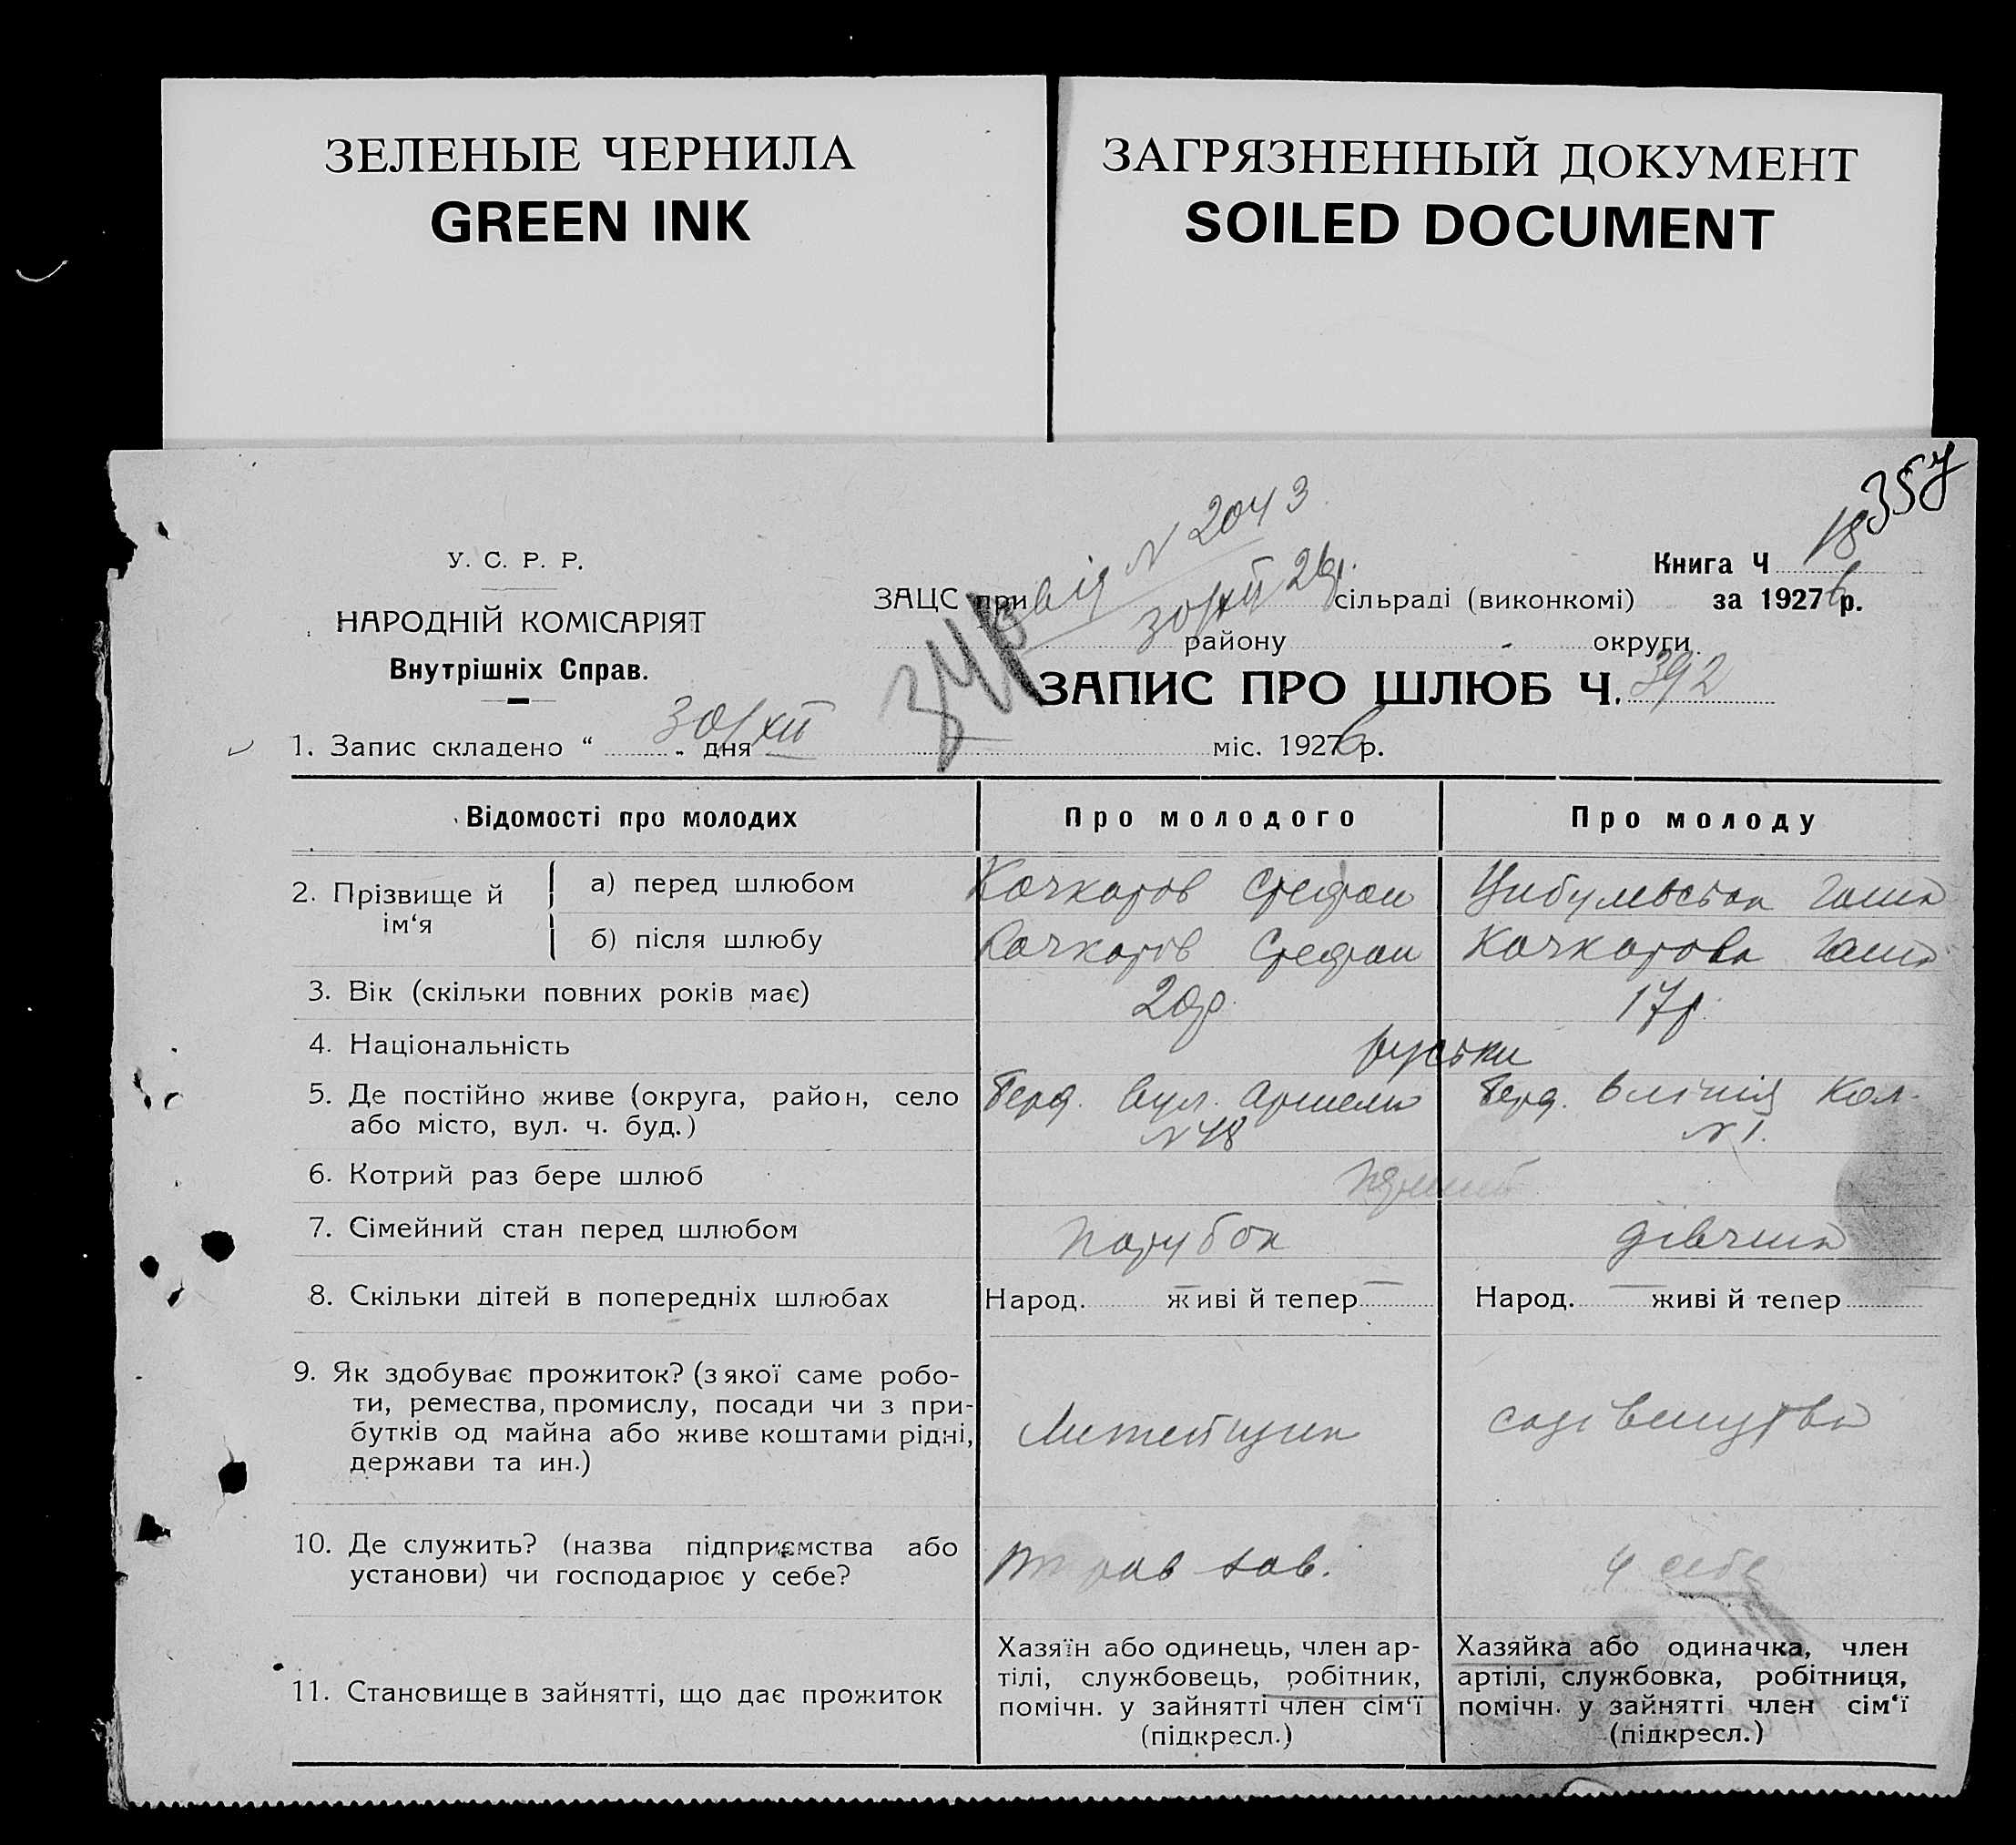 ЗЕЛЕНЫЕ ЧЕРНИЛА
GREEN INK
ЗАГРЯЗНЕННЫЙ ДОКУМЕНТ
SOILED DOCUMENT
357
У. С. Р. Р.
НАРОДНІЙ КОМІСАРІЯТ
Внутрішніх Справ.
N 2043
від 30/XII 26р.
Книга Ч 18
ЗАЦС при сільраді (виконкомі) за 19276 р.
району округи
ЗАПИС ПРО ШЛЮБ Ч. 392
1. Запис складено “ 30/XII „ дня міс. 19276 р.
Відомості про молодих Про молодого Про молоду
2. Прізвище й ім‘я
а) перед шлюбом Кочкаров Стефан Цибульська Ганна
б) після шлюбу Кочкаров Стефан Кочкарова Ганна
3. Вік (скільки повних років має) 20р. 17р.
4. Національність руські
5. Де постійно живе (округа, район, село Берд. вул. Берд. Кол.
або місто, вул. ч. буд.) N 48 N 1.
6. Котрий раз бере шлюб перший
7. Сімейний стан перед шлюбом парубок дівчина
8. Скільки дітей в попередніх шлюбах Народ. — живі й тепер — Народ. — живі й тепер
9. Як здобуває прожиток? (з якої саме робо-
ти, ремества, промислу, посади чи з при-
бутків од майна або живе коштами рідні,
держави та ин.)
Литейщик
10. Де служить? (назва підприємства або
установи) чи господарює у себе?
зав. у себе
11. Становище в зайнятті, що дає прожиток
Хазяїн або одинець, член ар-
тілі, службовець, робітник,
помічн. у зайнятті член сім‘ї
(підкресл.)
Хазяйка або одиначка, член
артілі, службовка, робітниця,
помічн. у зайнятті член сім‘ї
(підкресл.)